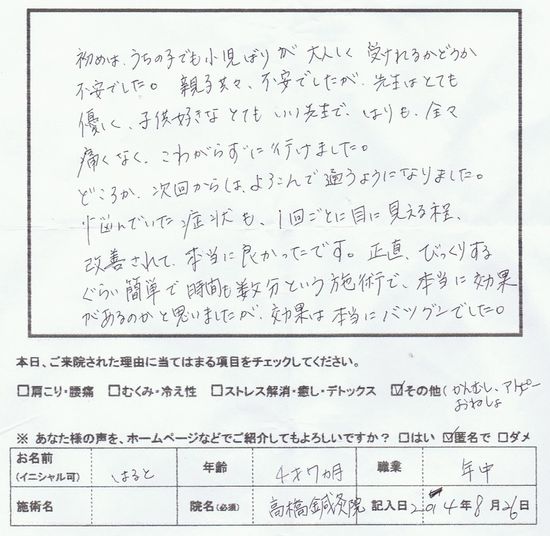 初めは、うちの子でも小児ばりが大人しく受けれるかどうか
不安でした。親子共々、不安でしたが、先生はとても
優しく、子供好きなとてもいい先生で、はりも、全々
痛くなく、こわがらずに行けました。
どころか、次回からは、よろこんで通うようになりました。
悩んでいた症状も、1回ごとに目に見える程、
改善されて、本当に良かったです。正直、びっくりする
ぐらい簡単で時間も数分という施術で、本当に効果
があるのかと思いましたが、効果は本当にバツグンでした。
本日、ご来院された理由に当てはまる項目をチェックしてください。
□肩こり・腰痛 □むくみ・冷え性 □ストレス解消・癒し・デトックス ☑その他(かんむし、アトピー
おねしょ
※ あなた様の声を、ホームページなどでご紹介してもよろしいですか? □はい ☑匿名で □ダメ
お名前
(イニシャル可) はると 年齢 4才7ヵ月 職業 年中
施術名 院名(必須) 高橋鍼灸院 記入日 2014年8月26日